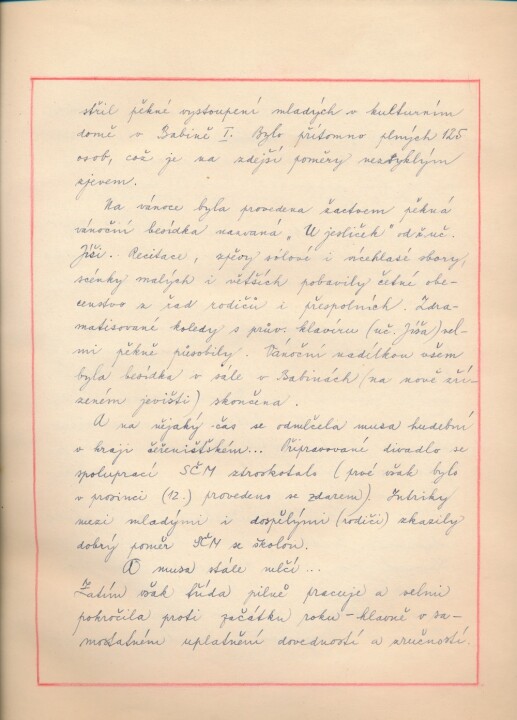 střil pěkné vystoupení mladých v kulturním
domě v Babině I. Bylo přítomno plných 125
osob, což je na zdejší poměry nezvyklým
zjevem.
Na vánoce byla provedena žactvem pěkná
vánoční besídka nazvaná „U jesliček" od ř. uč.
Jíši. Recitace, zpěvy sólové i vícehlasé sbory,
scénky malých i větších pobavily četné obe-
censtvo z řad rodičů i přespolních. Zdra-
matisované koledy s prův. klavíru (uč. Jíša) vel-
mi pěkně působily. Vánoční nadílkou všem
byla besídka v sále v Babinách (na nově zří-
zeném jevišti) skončena.
A na nějaký čas se odmlčela musa hudební
v kraji čeřenišťském... Připravované divadlo se
spoluprací SČM ztroskotalo (prvé však bylo
v prosinci (12.) provedeno se zdarem). Intriky
mezi mladými i dospělými (rodiči) zkazily
dobrý poměr SČM se školou.
A musa stále mlčí...
Zatím však třída pilně pracuje a velmi
pokročila proti začátku roku – hlavně v sa-
mostatném uplatnění dovedností a zručností.